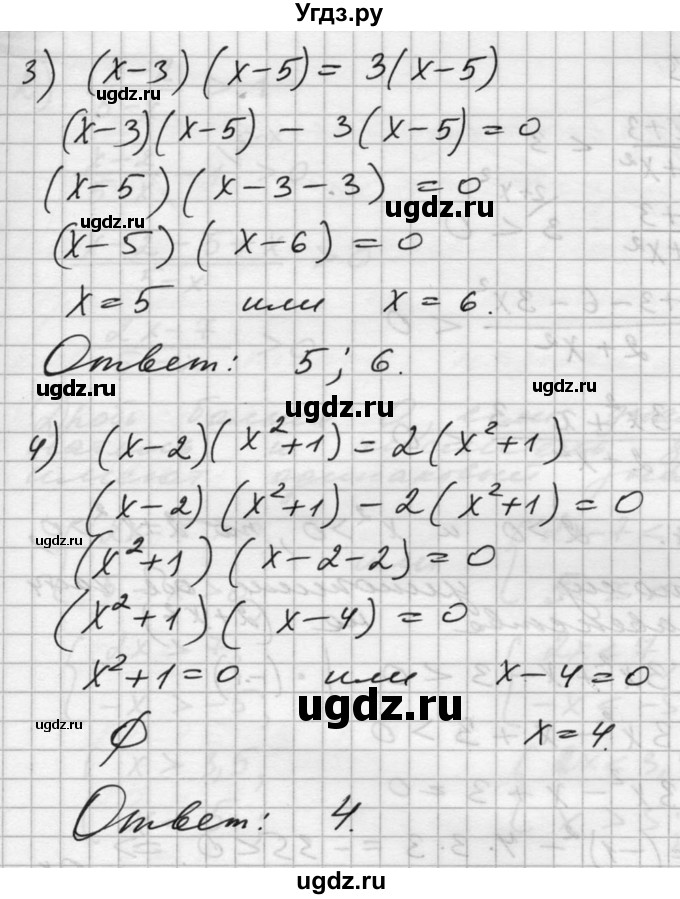 Угдз.ру
3) (x-3)(x-5) = 3(x-5)
ugdz.ru
(x-3)(x-5) - 3(x-5) = 0
(x-5)(x-3-3) = 0
ugdz.ru
ugdz.ru
(x-5)(x-6) = 0
x = 5 или x = 6.
Ответ: 5; 6.
ugdz.ru
ugdz.ru
ugdz.ru
4) (x-2)(x²+1) = 2(x²+1)
(x-2)(x²+1) - 2(x²+1) = 0
ugdz.ru
(x²+1)(x-2-2) = 0
(x²+1)(x-4) = 0
x²+1 = 0 или x-4 = 0
ugdz.ru
ugdz.ru
∅ x = 4.
Ответ: 4.
ugdz.ru